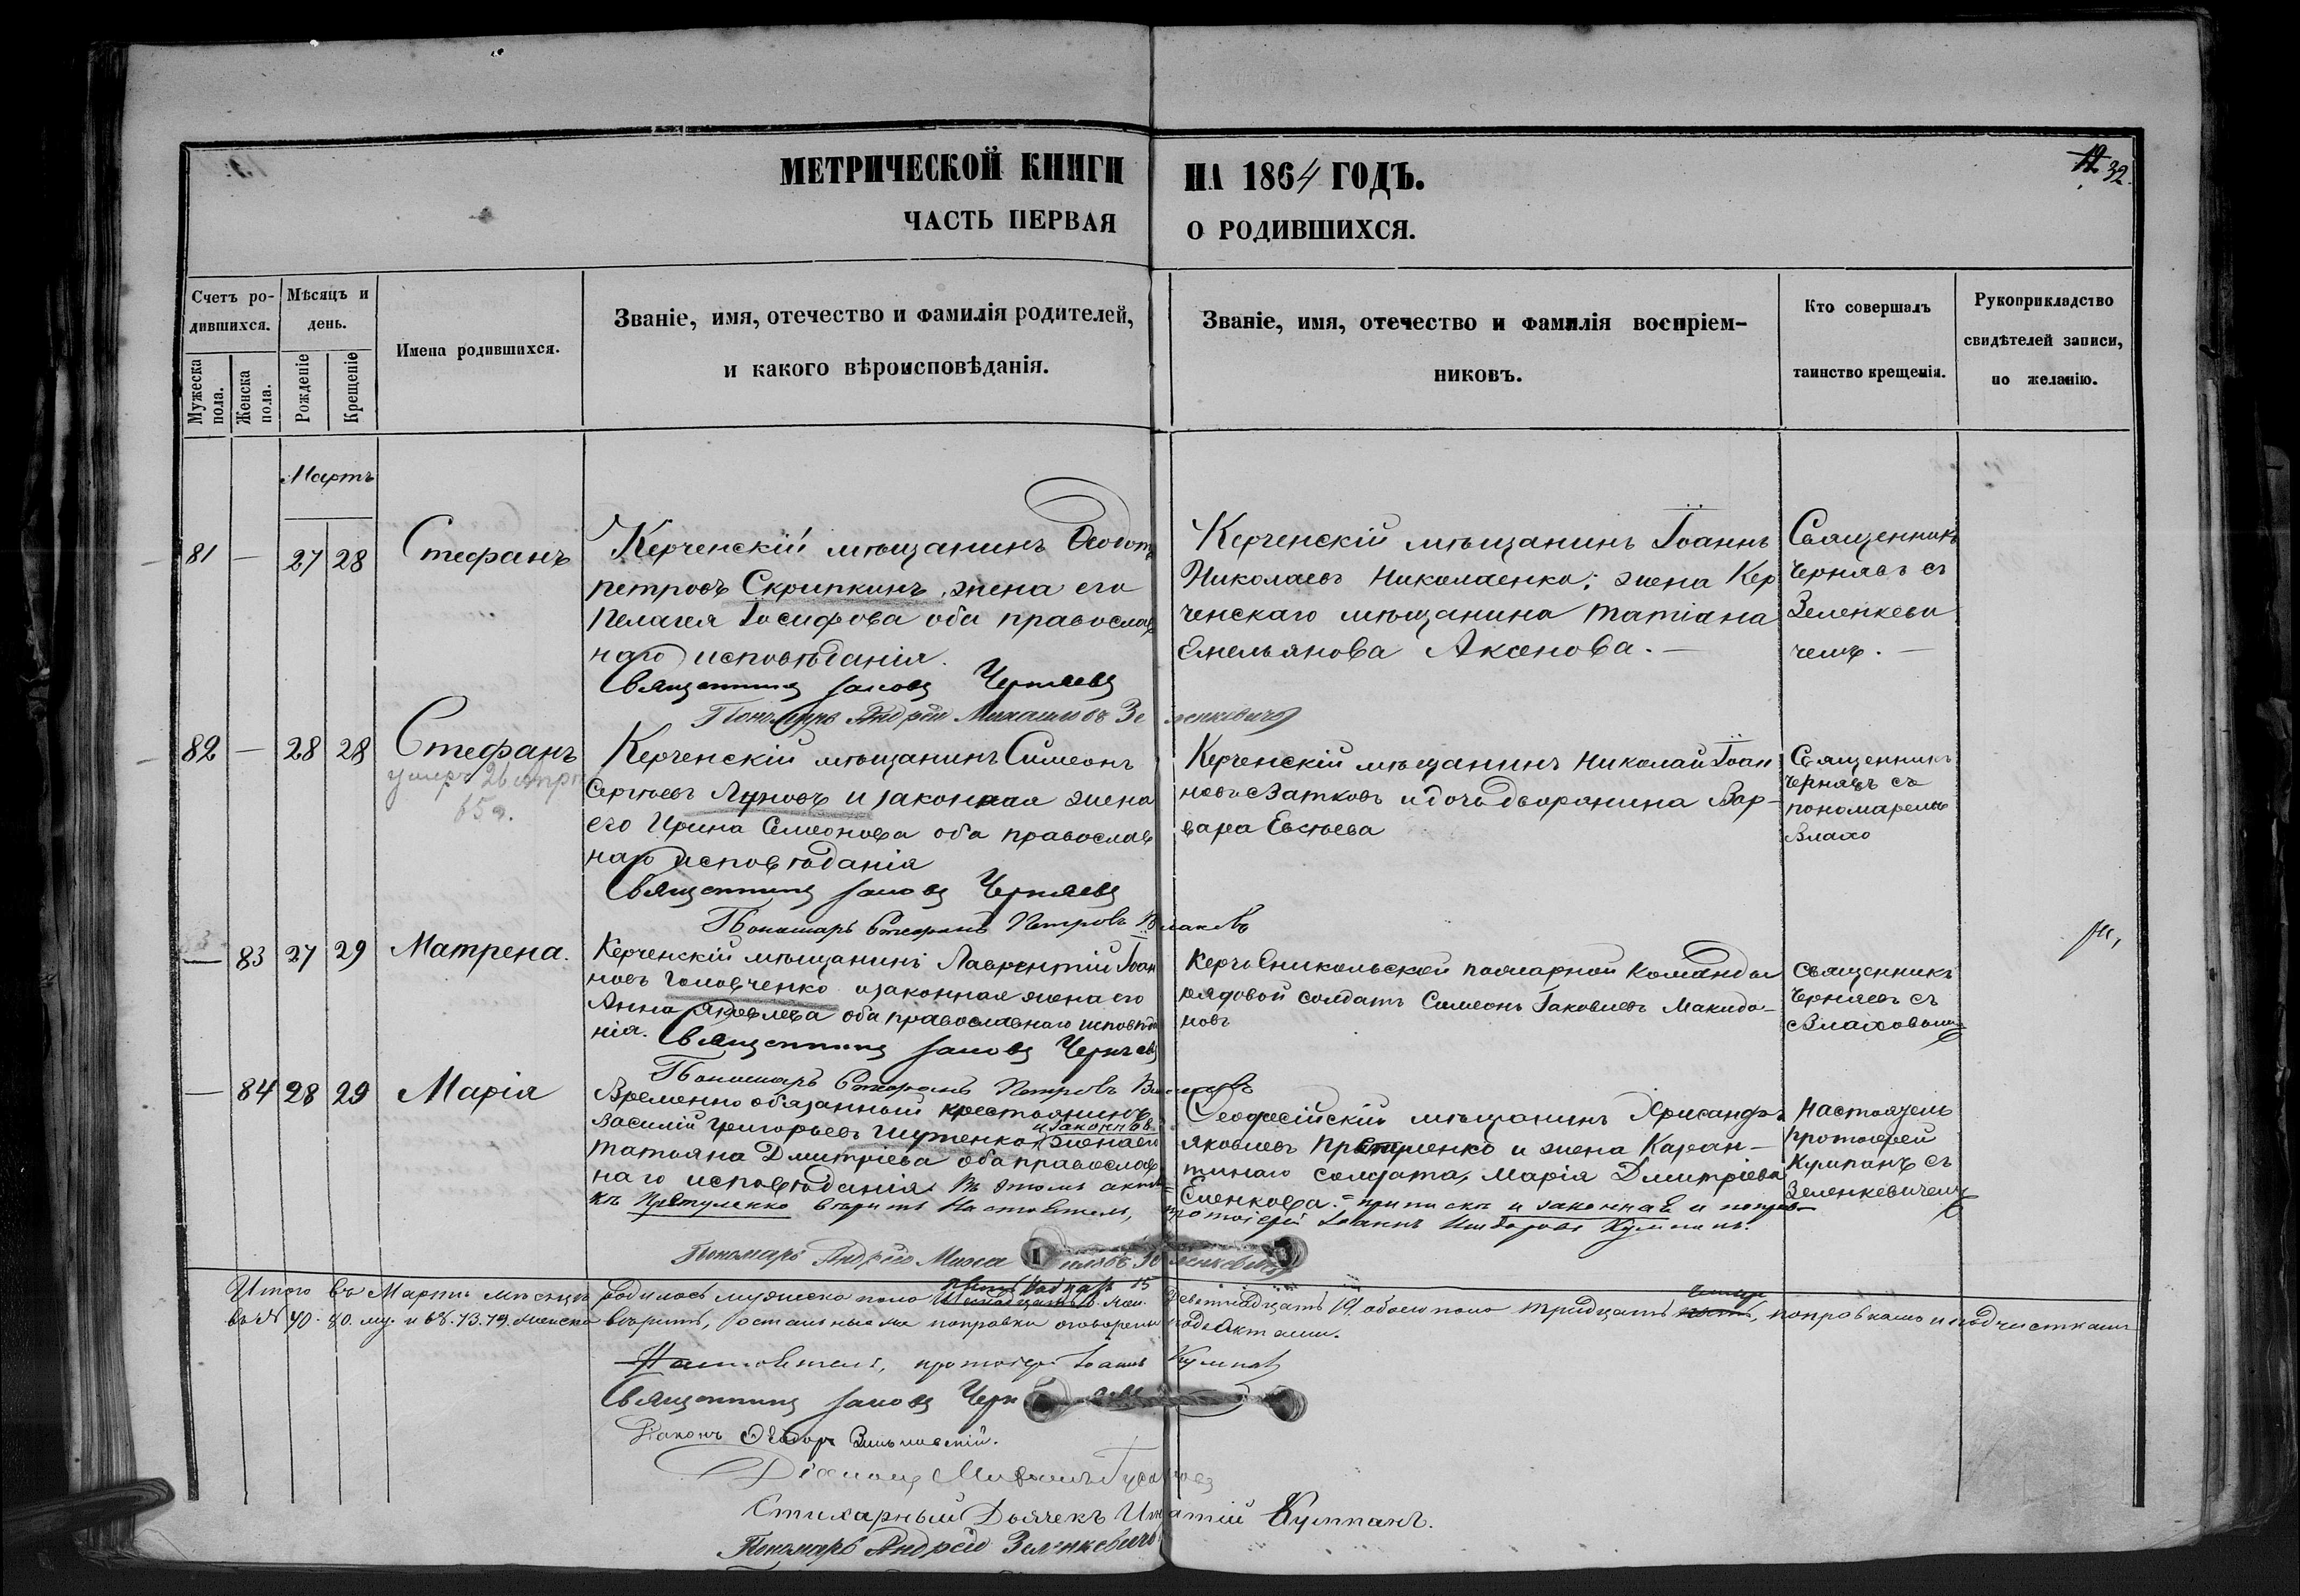 МЕТРИЧЕСКОЙ КНИГИ НА 1864 ГОДЪ.
32.
ЧАСТЬ ПЕРВАЯ О РОДИВШИХСЯ.
Счетъ ро-
дившихся.
Мужеска
пола.
Женска
пола.
Мѣсяцъ и
день.
Рожденіе
Крещеніе
Имена родившихся.
Званіе, имя, отечество и фамилія родителей,
и какого вѣроисповѣданія.
Званіе, имя, отечество и фамилія воспріем-
никовъ.
Кто совершалъ
таинство крещенія.
Рукоприкладство
свидѣтелей записи,
по желанію.
Мартъ
81 — 27 28 Стефанъ
Керченскій мѣщанинъ Ѳеодотъ
петровъ Скрипкинъ, жена его
Пелагея Іосифова оба православ
наго исповѣданія.
Священникъ Іаковъ Черняевъ
Пономарь Андрей Михаиловъ Зеленкевичъ
Керченскій мѣщанинъ Іоаннъ
Николаевъ Николаенко; жена Кер
ченскаго мѣщанина Татіана
Емельянова Аксенова. —
Священникъ
Черняевъ съ
Зеленкеви
чемъ. —
82 — 28 28 Стефанъ
умеръ 26 апр
65 г.
Керченскій мѣщанинъ Симеонъ
Сергѣевъ Луновъ и законная жена
его Ирина Симеонова оба православ
наго исповѣданія
Священникъ Іаковъ Черняевъ
Пономарь Стефанъ Петровъ Влаховъ
Керченскій мѣщанинъ Николай Іоан
новъ Затковъ и дочь дворянина Вар-
вара Евсѣева
Священникъ
Черняевъ съ
пономаремъ
Влахо
— 83 27 29 Матрена.
Керченскій мѣщанинъ Лаврентій Іоан
новъ Головченко и законная жена его
Анна Яковлева оба православнаго исповѣда
нія. Священникъ Іаковъ Черняевъ
Пономарь Стефанъ Петровъ Влаховъ
Керчь Еникольской пожарной Команды
рядовой солдатъ Симеонъ Іаковлевъ Макидо-
новъ
Священникъ
Черняевъ съ
Влаховымъ
— 84 28 29 Марія
Временно обязанный крестьянинъ
Василій Григорьевъ Шутенко и законная жена его
Татьяна Дмитріева оба православ
наго исповѣданія. Въ этомъ актѣ
Ѳеодосійскій мѣщанинъ Хрисанфъ
Яковлевъ и жена Каран-
тинаго солдата, Марія Дмитріева
Еленкова. = припискѣ и законная и поправ-
кѣ вѣрить Настоятель, протоіерей Іоаннъ Кумпанъ.
Пономарь Андрей Михаиловъ Зеленкевичъ
Настоятель
протоіерей
Кумпанъ съ
Зеленкевичемъ
Итого въ Мартѣ мѣсяцѣ родилось мужеска пола 15 девятнадцать 19. обоего пола тридцать четыре, поправкамъ и подчисткамъ
въ № 70. 80. муж. и 68. 73. 79. женска вѣрить, остальныя же поправки оговорены подъ Актами.
Настоятель, протоіерей Іоаннъ Кумпанъ
Священникъ Іаковъ Черняевъ
Діаконъ Ѳеодоръ
Діаконъ Михаилъ
Стихарный Дьячекъ Игнатій Кумпанъ.
Пономарь Андрей Зеленкевичъ